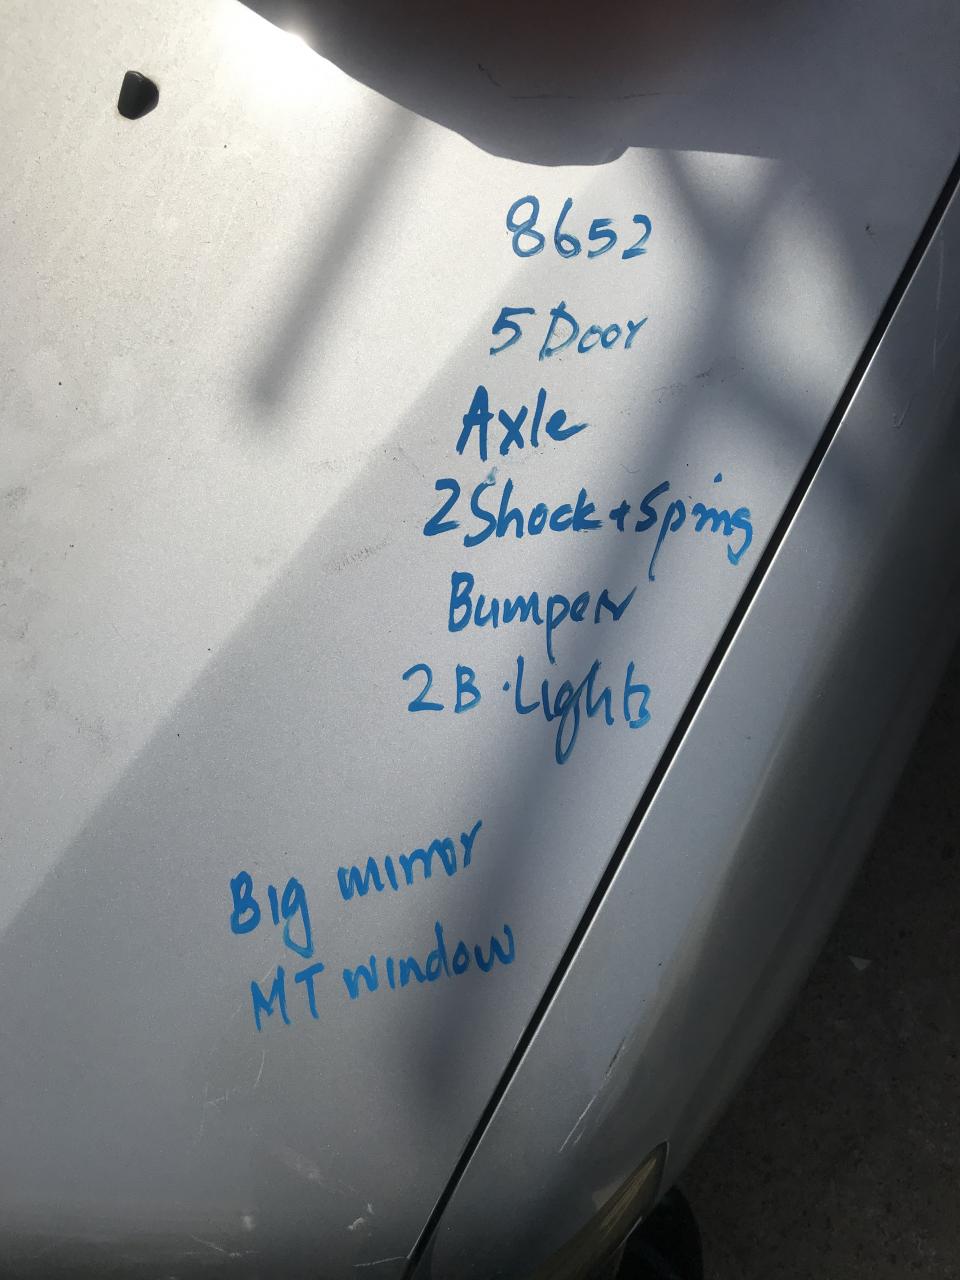 8652
5 Door
Axle
2 Shock + Spring
Bumper
2 B. Lights
Big mirror
MT window